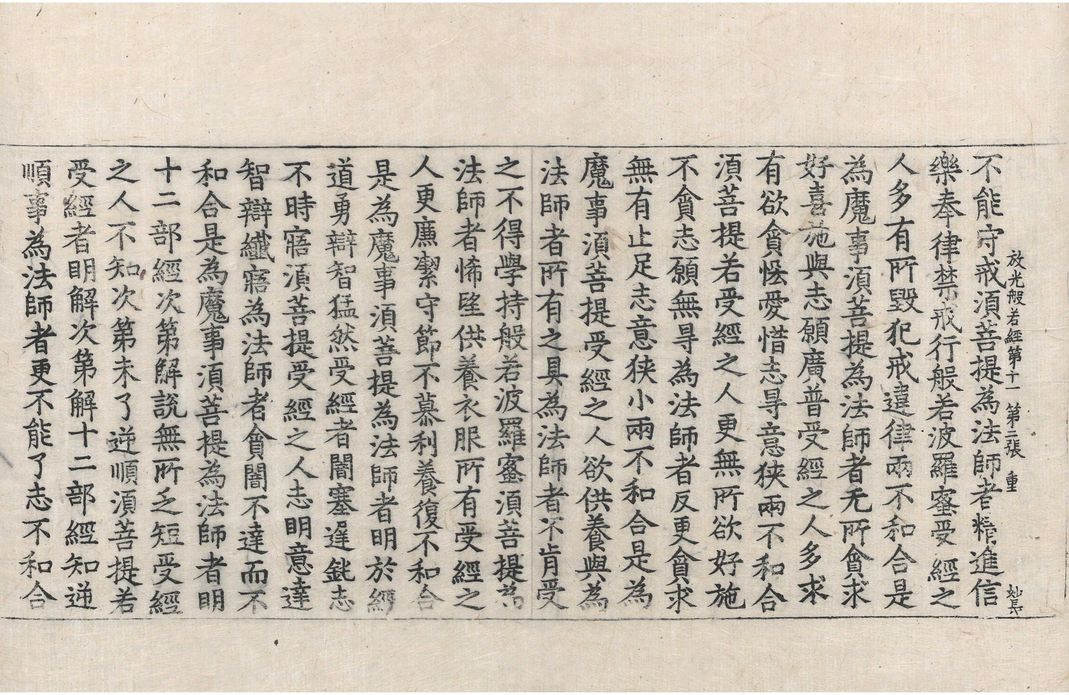 不能守戒須菩提為法師者精進信
放光般若經第十一 第二張 重 妙長
樂奉律禁戒行般若波羅蜜受經之
人多有所毀犯戒違律兩不和合是
為魔事須菩提為法師者无所貪求
好喜施與志願廣普受經之人多求
有欲貪怪愛惜志㝵意狹兩不和合
須菩提若受經之人更無所欲好施
不貪志願無㝵為法師者反更貪求
無有止足志意狹小兩不和合是為
魔事須菩提受經之人欲供養與為
法師者所有之具為法師者不肯受
之不得學持般若波羅蜜須菩提為
法師者悕望供養衣服所有受經之
人更廉潔守節不慕利養復不和合
是為魔事須菩提為法師者明於經
道勇辯智猛然受經者闇塞遲鈍志
不時寤須菩提受經之人志明意達
智辯纖寤為法師者貪闇不達而不
和合是為魔事須菩提為法師者明
十二部經次第解說無所乏短受經
之人不知次第未了逆順須菩提若
受經者明解次第解十二部經知逆
順事為法師者更不能了志不和合